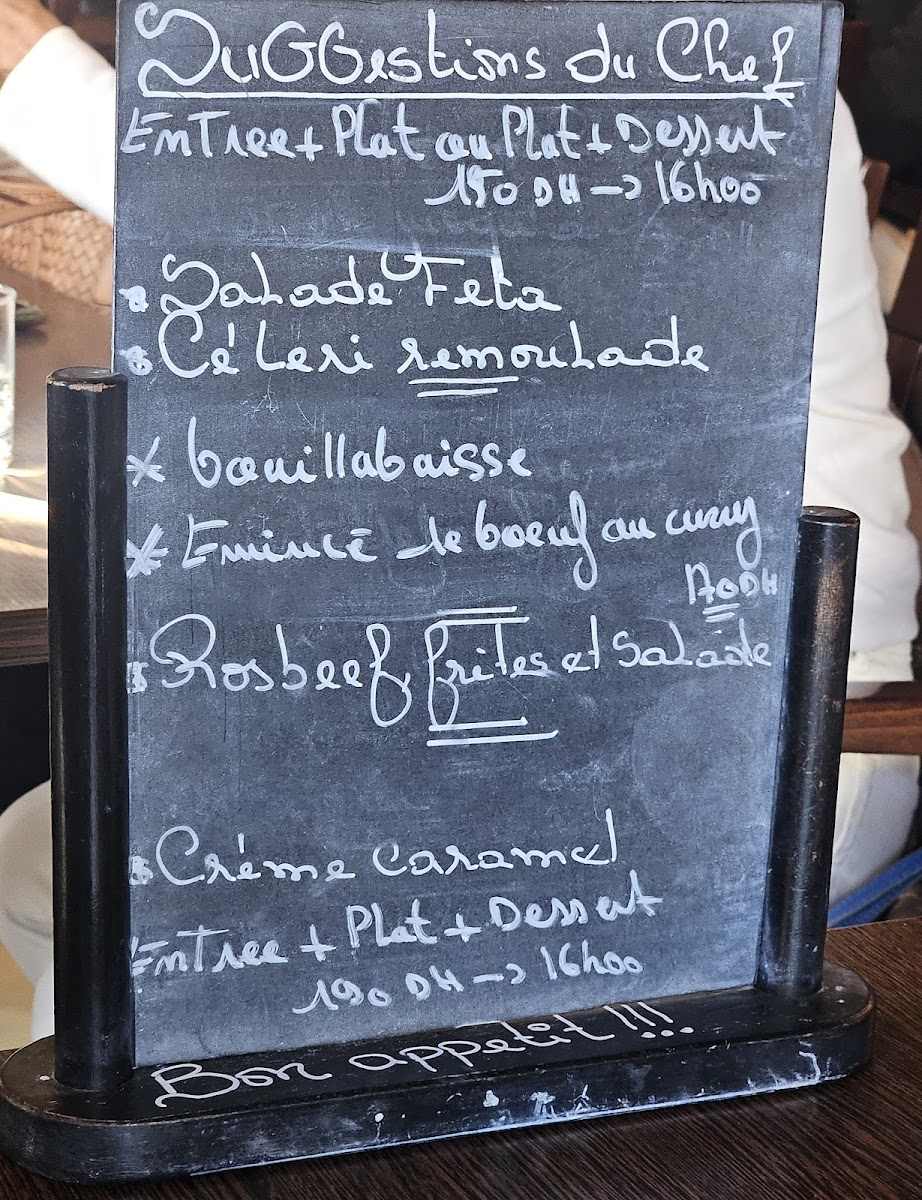 SuGGestions du Chef
EnTree + Plat ou Plat + Dessert
150 DH → 16h00
Salade Feta
Cé'Leri remoulade
* bouillabaisse
* Emincé de boeuf au curry
170 DH
Rosbeef frites et Salade
Créme caramel
EnTree + Plat + Dessert
190 DH → 16h00
Bon appetit !!!